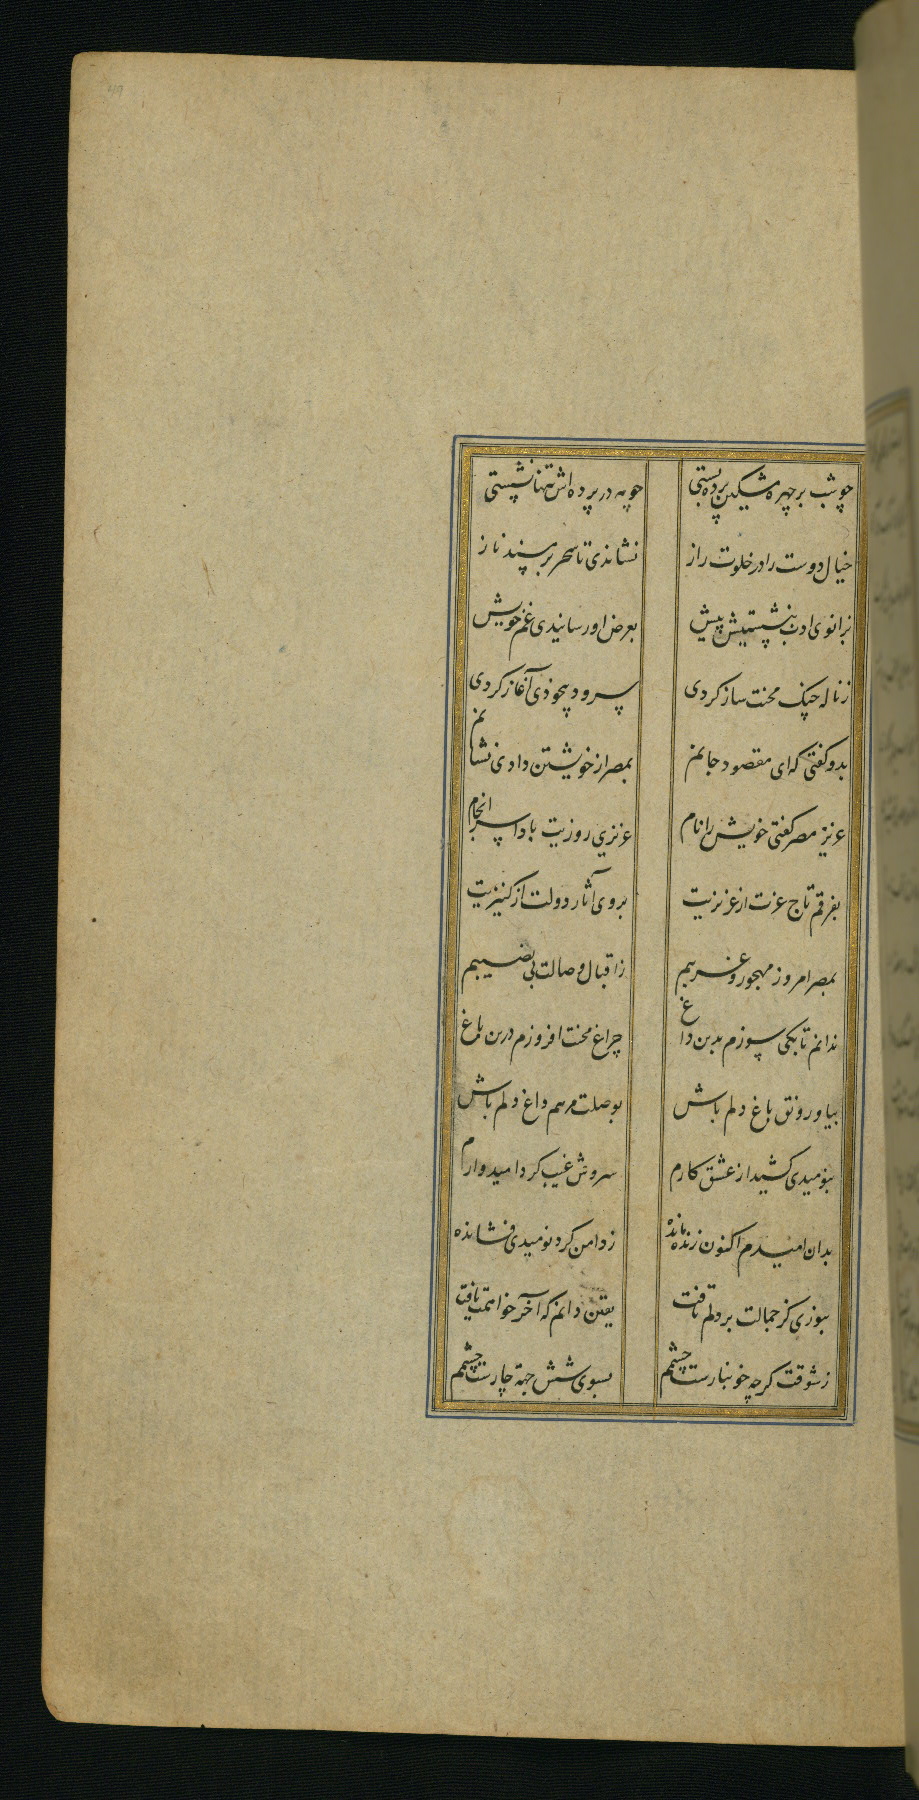 49
چو شب بر چهره مشکین پرده بستی چو مه در پرده اش تنها نشستی
خیال دوست را در خلوت راز نشاندی تا سحر بر مسند ناز
بزانوی ادب بنشستیش پیش بعرض او رسانیدی غم خویش
ز ناله چنک محنت ساز کردی سرود بیخودی آغاز کردی
بدو گفتی که ای مقصود جانم بمصر از خویشتن دادی نشانم
عزیز مصر گفتی خویش را نام عزیزی روزیت بادا سرانجام
بفرقم تاج عزت از عزیزیت بروی آثار دولت از کنیزیت
بمصر امروز مهجور و غریبم ز اقبال وصالت بی نصیبم
ندانم تا بکی سوزم بدین داغ چراغ محنت افروزم درین باغ
بیا و رونق باغ دلم باش بوصلت مرهم داغ دلم باش
بنومیدی کشید از عشق کارم سروش غیب کرد امیدوارم
بدان امیدم اکنون زنده مانده ز دامن کرد نومیدی فشانده
بنوری کز جمالت بر دلم تافت یقین دانم که آخر خواهمت یافت
ز شوقت کرچه خونبارست چشمم بسوی شش جهة چارست چشمم